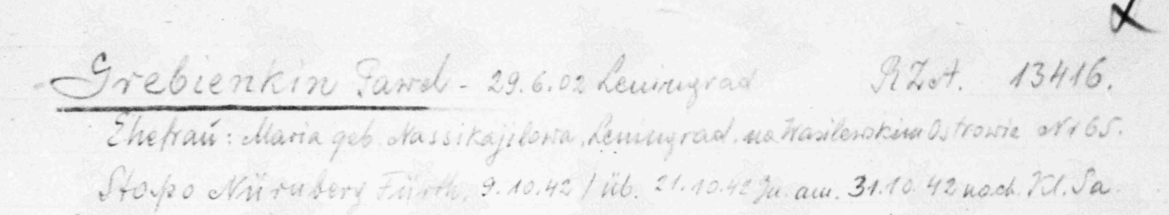 Grebienkin Pawel - 29.6.02 Leningrad RZA. 13416.
Ehefrau: Maria geb. Nassikajilowa, Leningrad. na Wasilewskim Ostrowie Nr 65.
Stapo Nürnberg Fürth, 9.10.42 / üb. 21.10.42 am. 31.10.42 nach Kl. Da